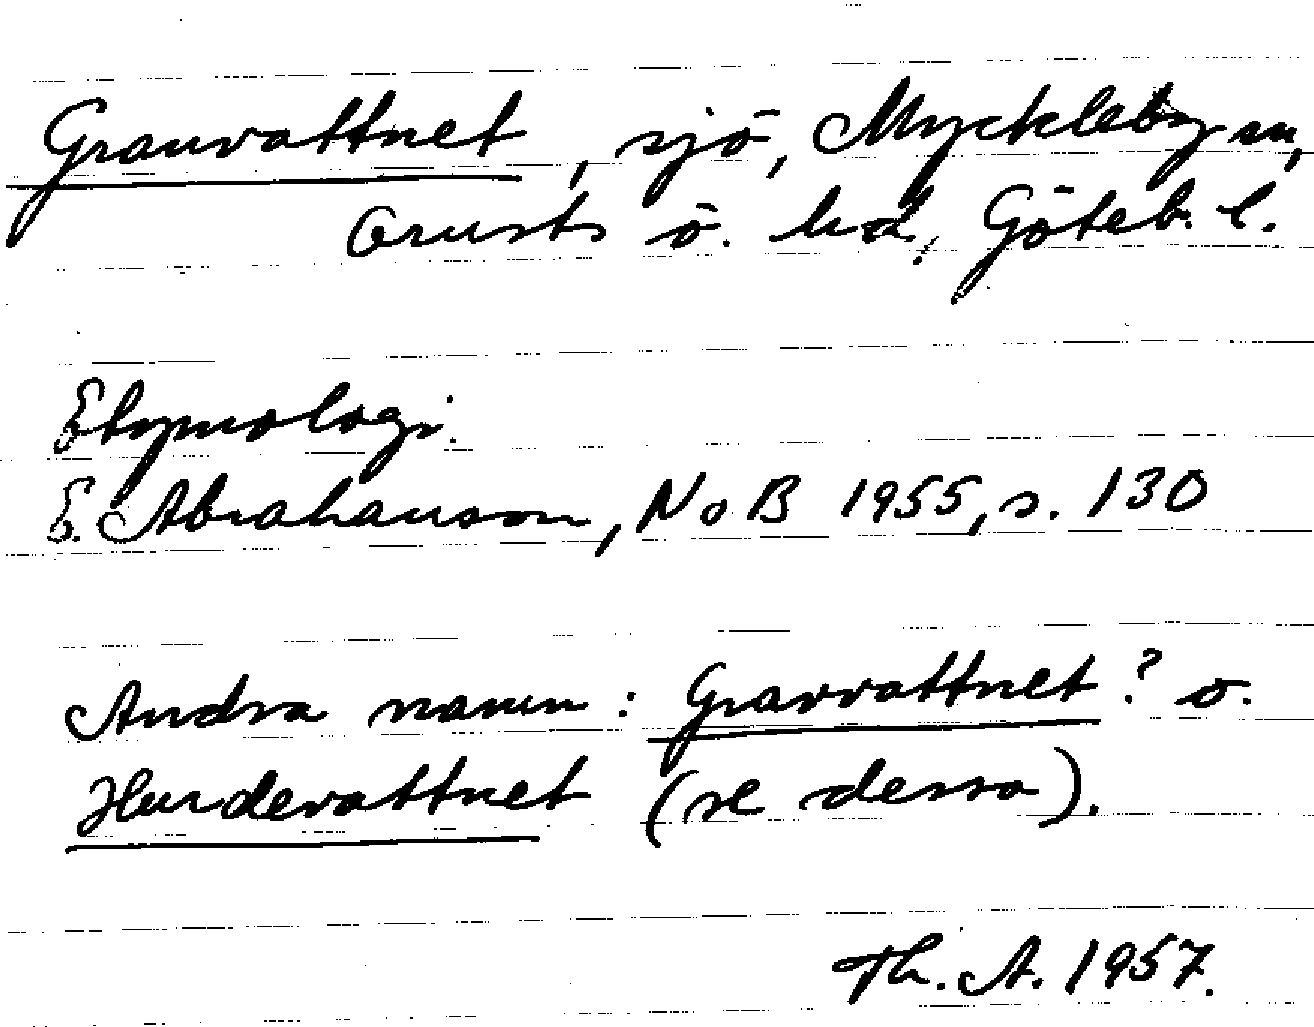 Granvattnet, sjö, Myckleby sn,
Orusts ö. hd, Göteb. l.
Etymologi.
E. Abrahamson, NoB 1955, s. 130
Andra namn: Gravvattnet? o.
Hurdevattnet (se dessa).
Th. A. 1957.